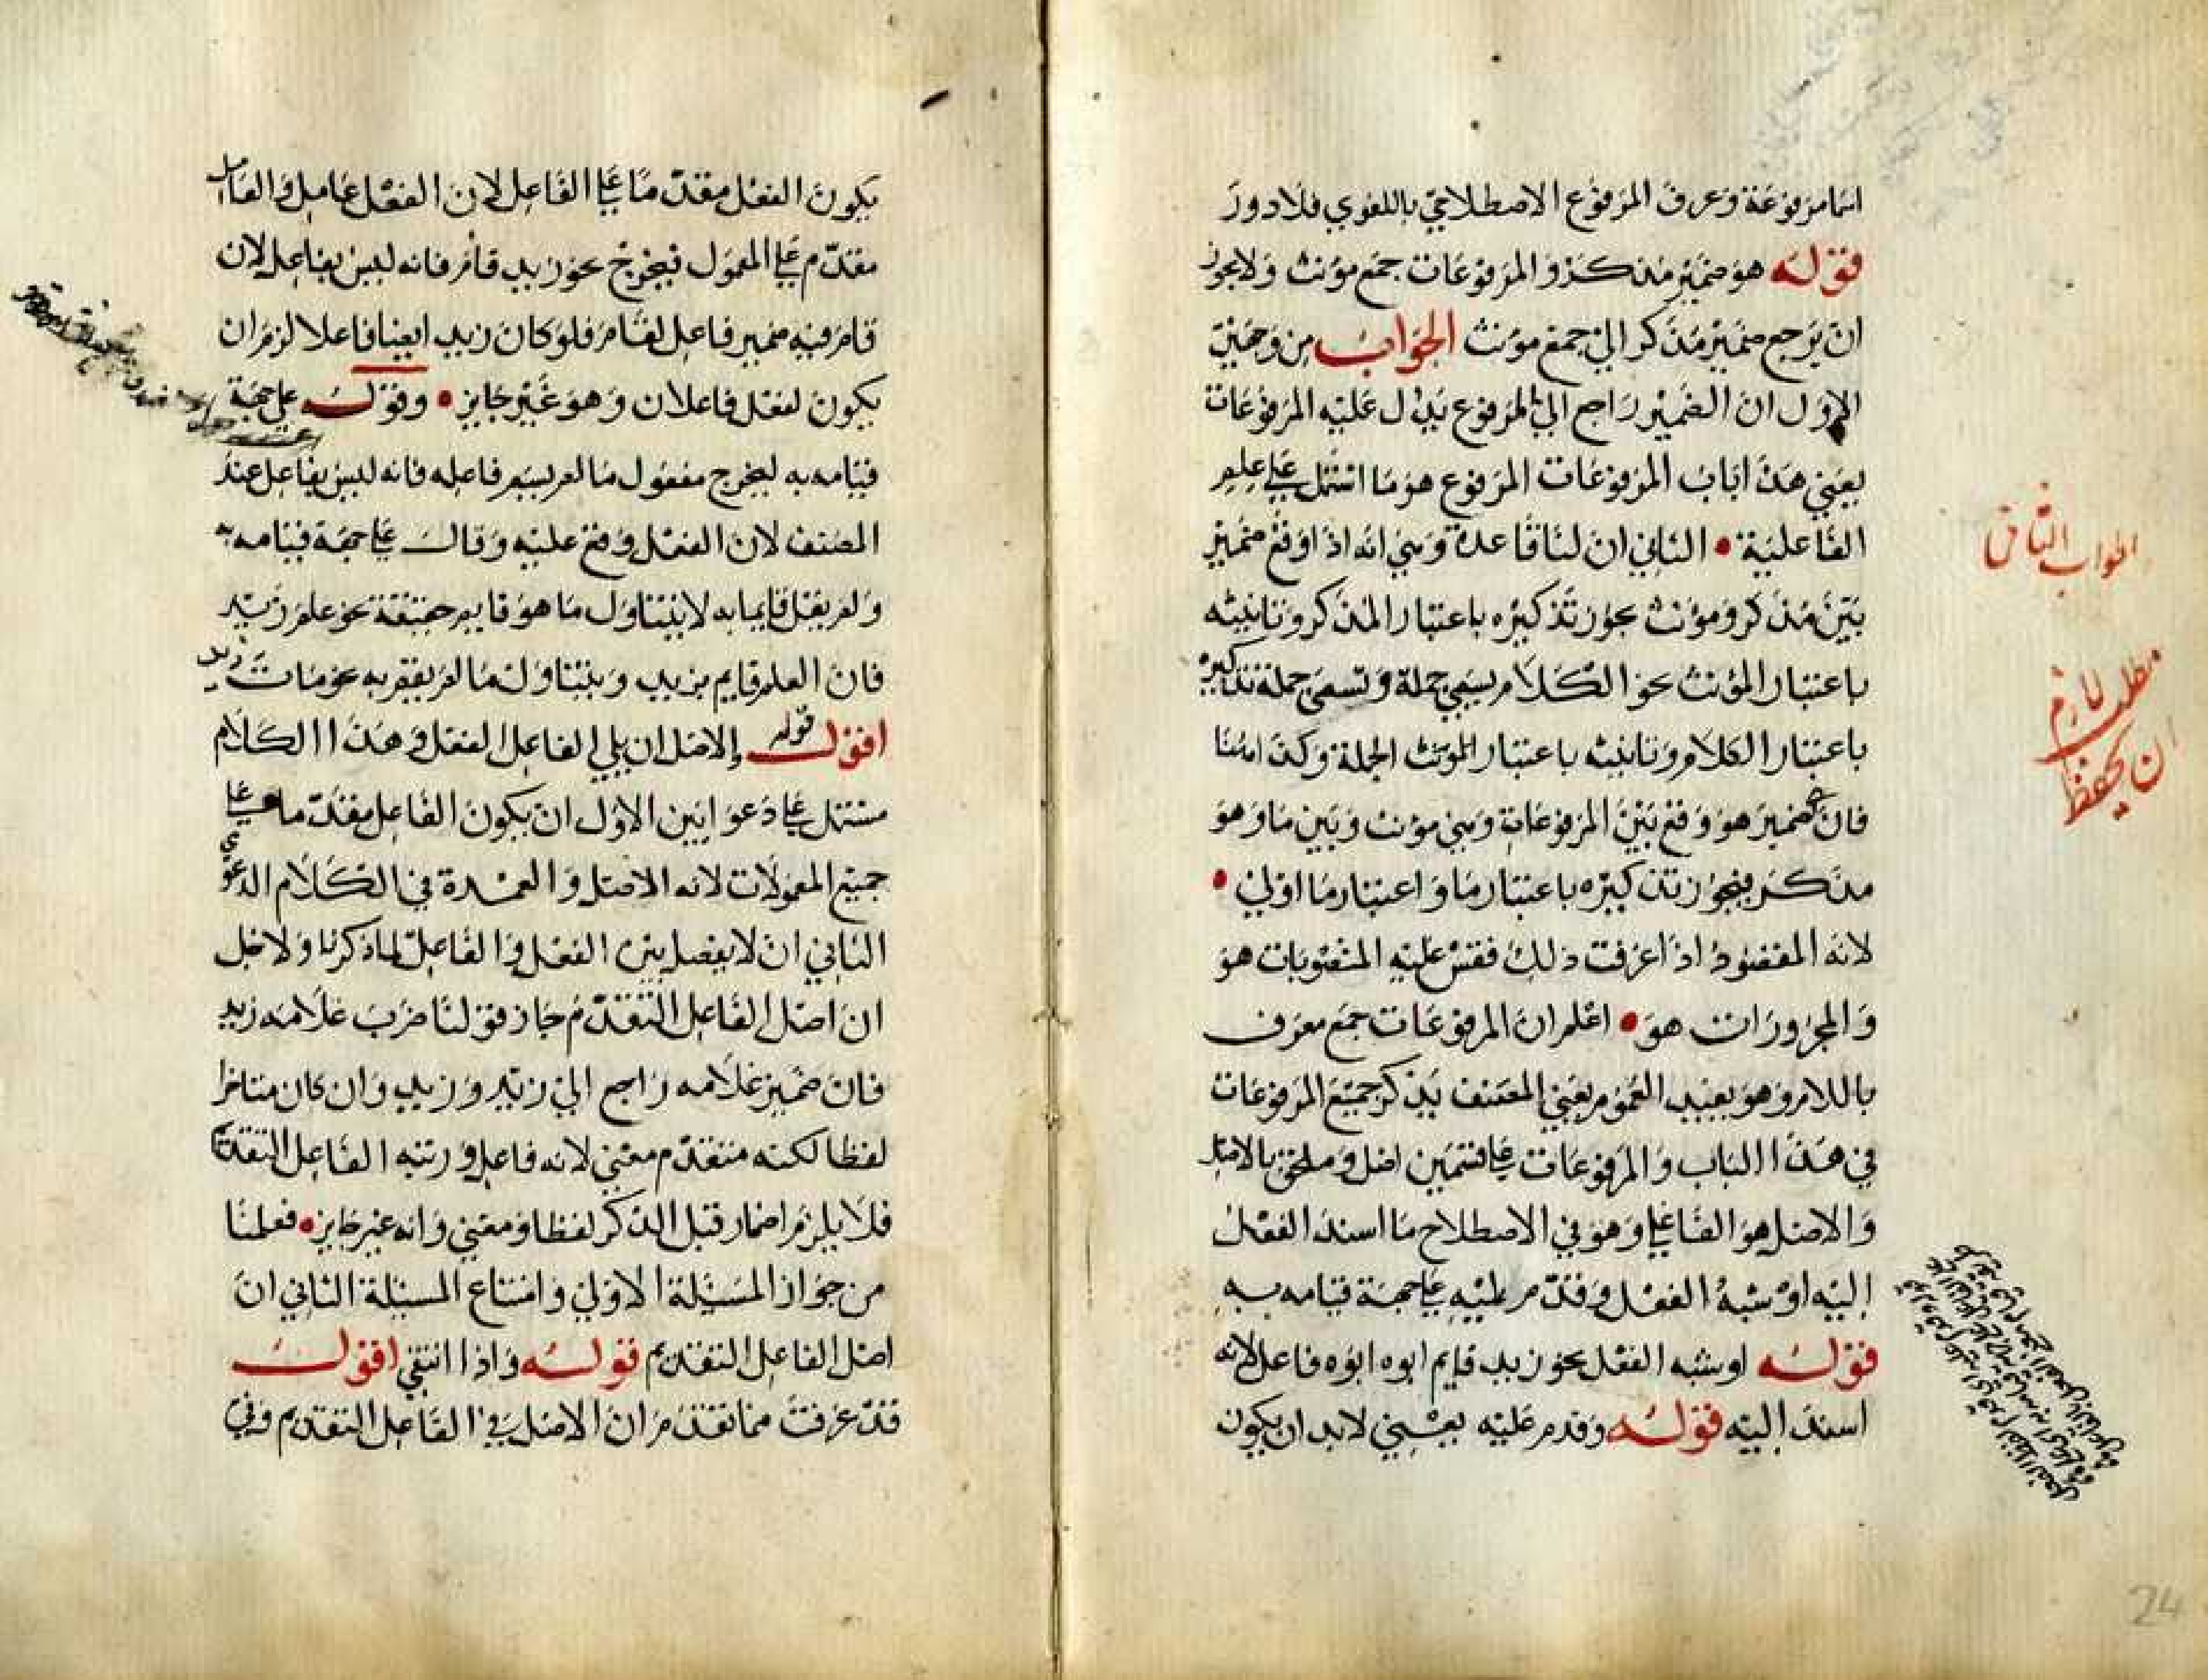 اسما مرفوعة وعرف المرفوع الاصطلاحي باللغوي فلا دور
قوله هو ضمير مذكر والمرفوعات جمع مؤنث ولا يجوز
ان يرجع ضمير مذكر الى جمع مؤنث الجواب من وجهين
الاول ان الضمير راجع الى المرفوع يدل عليه المرفوعات
يعني هذا باب المرفوعات المرفوع هو ما اشتمل على علم
الفاعلية • الثاني ان لنا قاعدة وهي انه اذا وقع ضمير
بين مذكر ومؤنث يجوز تذكيره باعتبار المذكر وتانيثه
باعتبار المؤنث نحو الكلام يسمى جملة وتسمى جملة تذكيره
باعتبار الكلام وتانيثه باعتبار المونث الجملة وكذا هنا
فان ضمير هو وقع بين المرفوعات وهي مؤنث وبين ما وهو
مذكر فيجوز تذكيره باعتبار ما واعتبار ما اولى •
لانه المقصود اذا عرفت ذلك فقس عليه المنصوبات هو
والمجرورات هو • اعلم ان المرفوعات جمع معرف
باللام وهو يفيد العموم يعني المصنف يذكر جميع المرفوعات
في هذا الباب والمرفوعات على قسمين اصل وملحق بالاصل
والاصل هو الفاعل وهو في الاصطلاح ما اسند الفعل
اليه او شبه الفعل وقدم عليه على جهة قيامه به
قوله او شبه الفعل نحو زيد قايم ابوه ابوه فاعل لانه
اسند اليه قوله وقدم عليه يعني لابد ان يكون
الجواب الثاني
مطلب لازم
ان يحفظ
24
يكون الفعل مقدما على الفاعل لان الفعل عامل والعامل
مقدم على المعمول فيخرج نحو زيد قام فانه ليس بفاعل لان
قام فيه ضمير فاعل لقام فلو كان زيد ايضا فاعلا لزم ان
يكون لفعل فاعلان وهو غير جايز • وقوله على جهة
قيامه به ليخرج مفعول ما لم يسم فاعله فانه ليس بفاعل عند
المصنف لان الفعل وقع عليه وقال على جهة قيامه به
ولم يقل قايما به لا يتناول ما هو قايم حقيقة نحو علم زيد
فان العلم قايم بزيد ويتناول ما لم يقم به نحو مات زيد
اقول قوله والاصل ان يلي الفاعل الفعل في هذا الكلام
مشتمل على دعوايين الاول ان يكون الفاعل مقدما على
جميع المعمولات لانه الاصل والعمدة في الكلام الدعوي
الثاني ان لا يفصل بين الفعل والفاعل لما ذكرنا ولاجل
ان اصل الفاعل التقدم جاز قولنا ضرب غلامه زيد
فان ضمير غلامه راجع الى زيد وزيد وان كان متاخرا
لفظا لكنه متقدم معنى لانه فاعل ورتبه الفاعل التقدم
فلا يلزم اضمار قبل الذكر لفظا ومعنى وانه غير جايز • فعلمنا
من جواز المسئلة الاولى وامتناع المسئلة الثاني ان
اصل الفاعل التقديم قوله واذا انتفى اقول
قد عرفت مما تقدم ان الاصل في الفاعل التقديم وفي